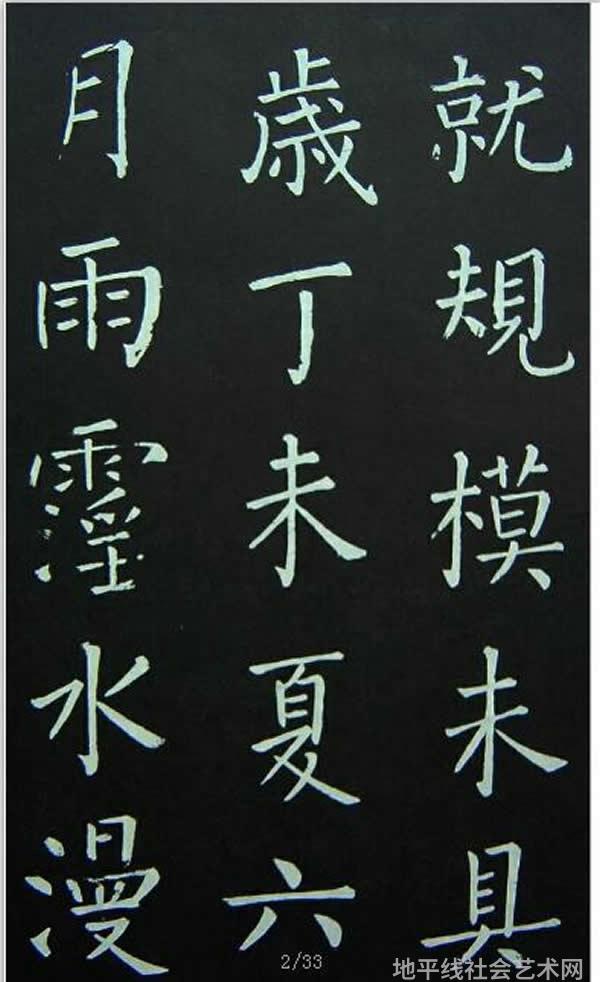 就規模未具
歳丁未夏六
月雨霪水漫
2/33
地平线社会艺术网